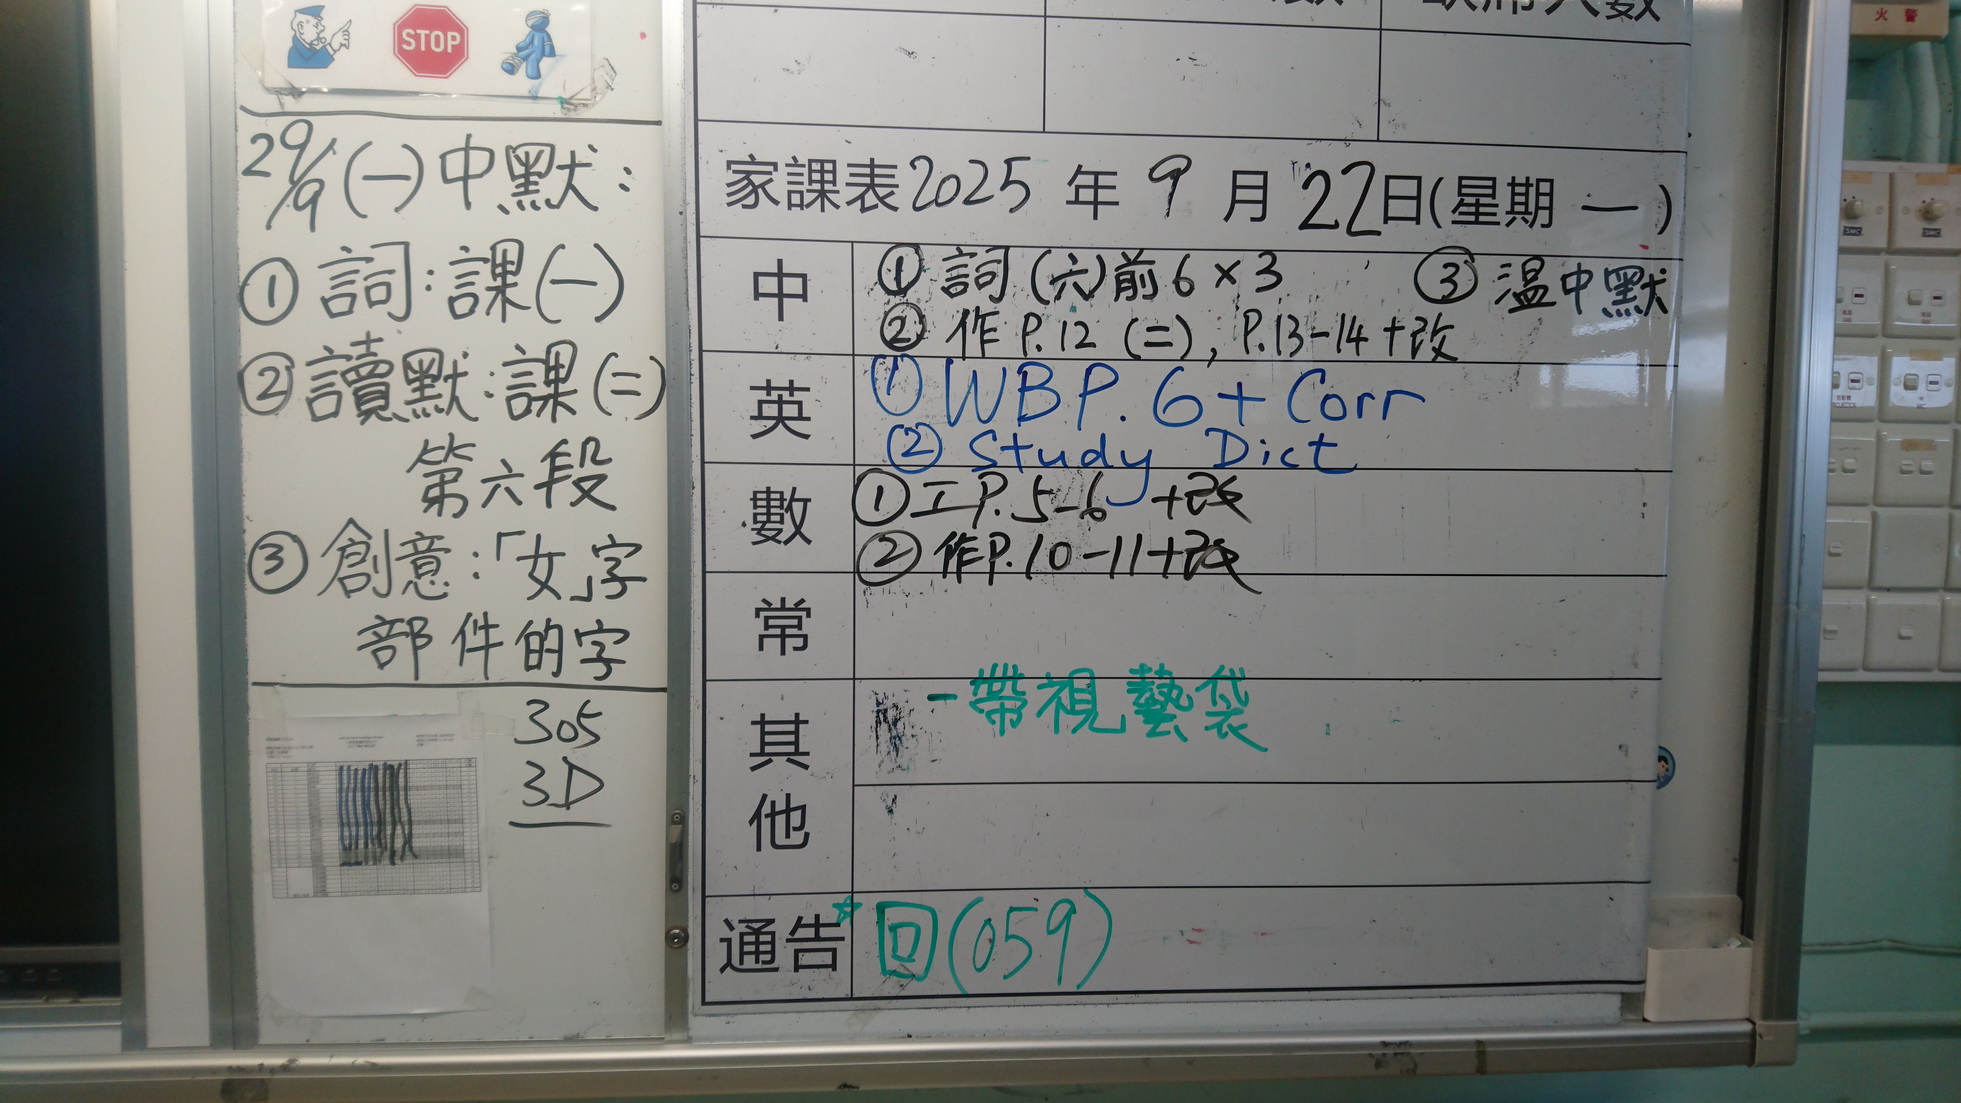 STOP
29/9(一)中默:
①詞:課(一)
②讀默:課(二)
第六段
③創意:「女」字
部件的字
305
3D
家課表2025年9月22日(星期一)
中
①詞(六)前6×3 ③溫中默
②作P.12(二), P.13-14+改
英
①WBP.6+Corr
②Study Dict
數
①工P.5-6+改
②作P.10-11+改
常
其他
-帶視藝袋
通告
回(059)
火警